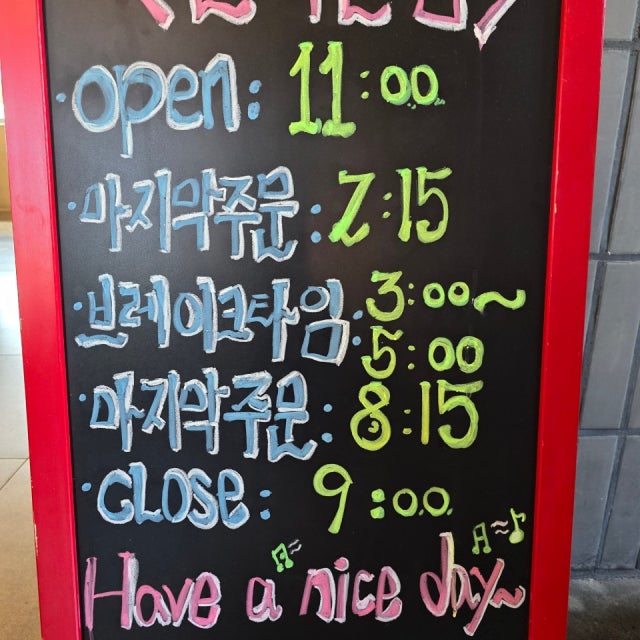 ·open: 11:00
·마지막주문: 2:15
·브레이크타임: 3:00~
5:00
·마지막주문: 8:15
·CLOSE: 9:00
Have a nice day~